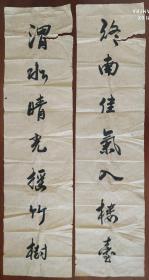 終南佳氣入樓臺
渭水晴光摇竹樹